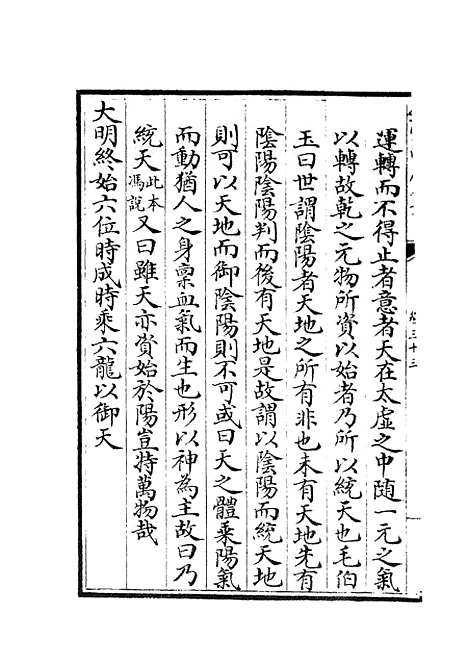 運轉而不得止者意者天在太虛之中隨一元之氣
以轉故乾之元物所資以始者乃所以統天也毛伯
玉曰世謂陰陽者天地之所有非也未有天地先有
陰陽陰陽判而後有天地是故謂以陰陽而統天地
則可以天地而御陰陽則不可或曰天之體乗陽氣
而動猶人之身稟血氣而生也形以神為主故曰乃
統天此本馮說又曰雖天亦資始於陽豈特萬物哉
大明終始六位時成時乗六龍以御天
卷三十三